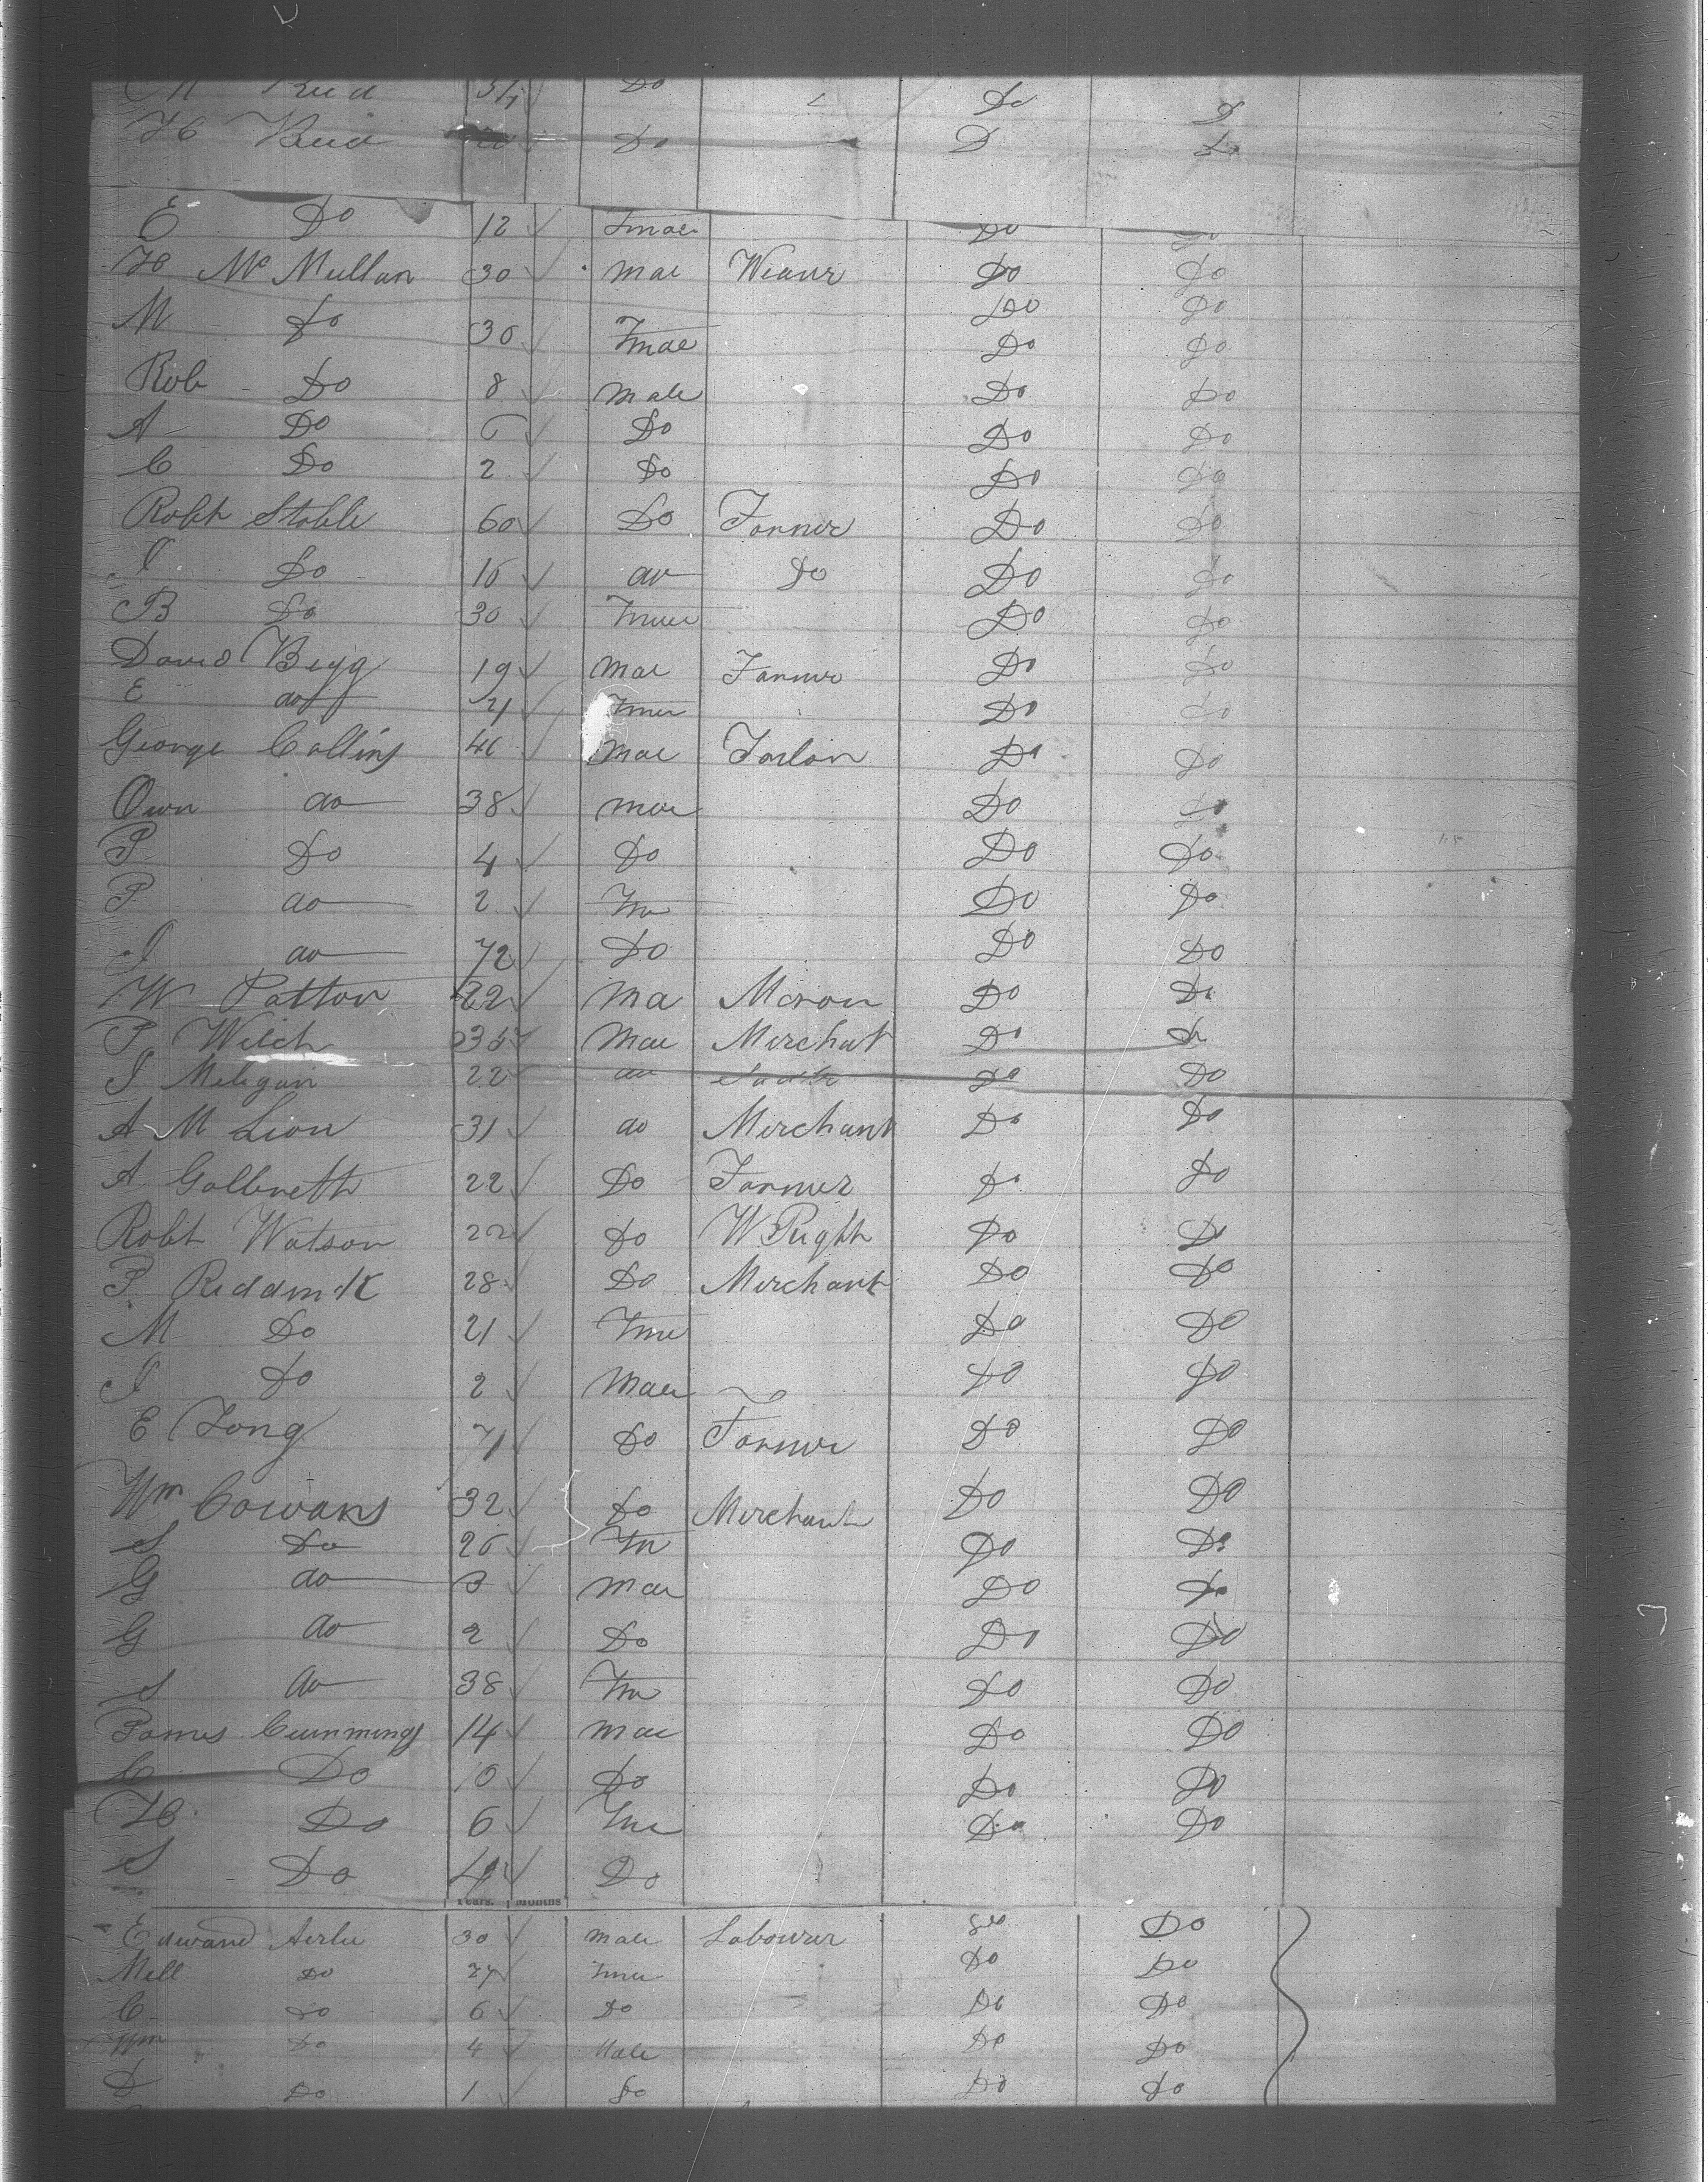 M Reid 34 Do Do D
H Reid Do D D
E Do 12 Fmae Do Do
H Mc Mullan 30 mae Weaver Do Do
M Do 30 Fmae Do Do
Do Do
Rob Do 8 male Do Do
A Do 6 Do Do Do
C Do 2 Do Do Do
Robt Stable 60 Do Farmer Do Do
J Do 16 do Do Do Do
B Do 30 Do Do
David Begg 19 mae Farmer Do Do
E do 21 Do Do
George Collins 46 mae Do Do
Own do 38 mae Do Do
P Do 4 Do Do Do
P do 2 Fm Do Do
J do 72 Do Do Do
W Patton 22 Ma Mason Do Do
P Welch 35 Mae Merchat Do Do
J Meligan 22 do Do Do
A M Lion 31 do Merchant Do Do
A Galbreth 22 Do Farmer Do Do
Robt Watson 22 Do W Right Do Do
P Reddick 28 Do Merchant Do Do
M Do 21 Fme Do Do
J Do 2 Male Do Do
E Long 71 Do Farmer Do Do
Wm Cowans 32 Do Merchant Do Do
S Do 26 Fm Do Do
G do 3 mae Do Do
G do 2 Do Do Do
S do 38 Fm Do Do
James Cummings 14 mae Do Do
C Do 10 Do Do Do
H Do 6 Fme Do Do
S Do 4 Do
Years. Months
Edward Airlie 30 male Labourer Do Do
Mell Do 27 Fmee Do Do
C Do 6 Do Do Do
Wm Do 4 Male Do Do
D Do 1 Do Do Do